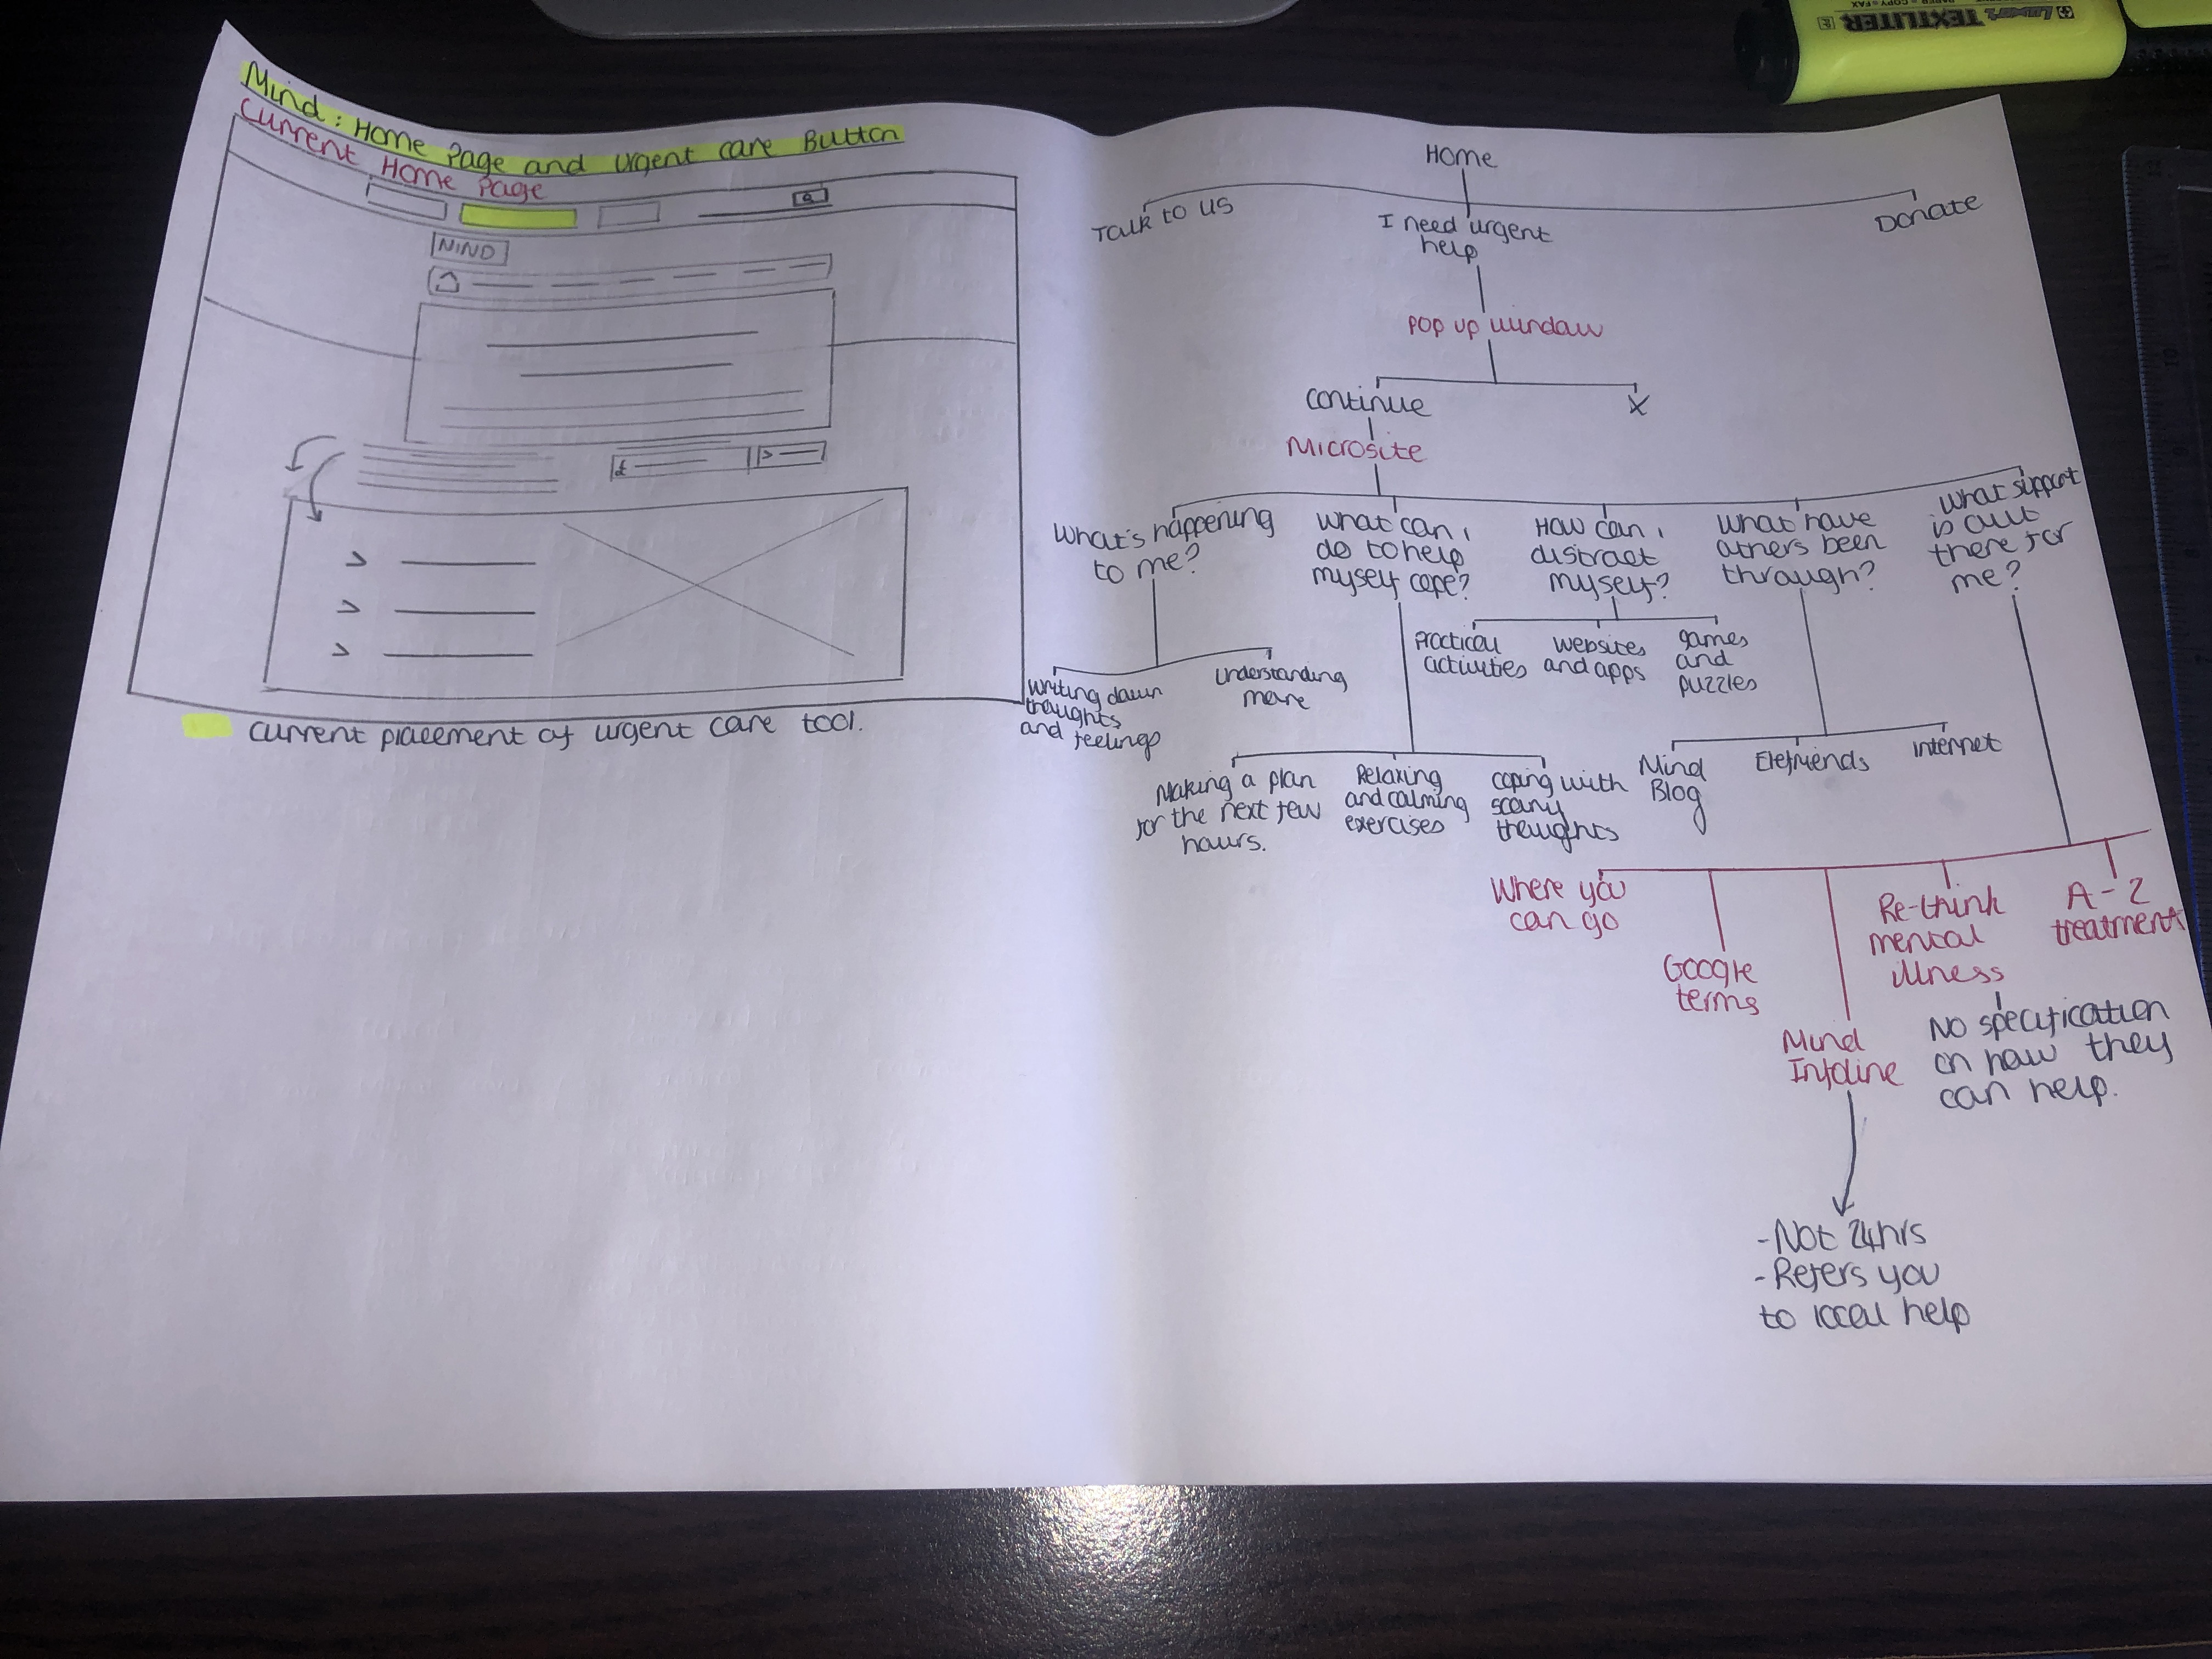 Mind: Home Page and Urgent care Button
Current Home Page
MIND
£
current placement of urgent care tool.
Home
Talk to us
I need urgent
help
Donate
Pop up window
continue
X
Microsite
What's happening
to me?
what can i
do to help
myself cope?
How can i
distract
myself?
what have
others been
through?
what support
is out
there for
me?
writing down
thoughts
and feelings
understanding
more
Practical
activities
websites
and apps
games
and
puzzles
Making a plan
for the next few
hours.
Relaxing
and calming
exercises
coping with
scary
thoughts
Mind
Blog
Elefriends
internet
Where you
can go
Google
terms
Mind
Infoline
Re-think
mental
illness
A-Z
treatment
No specification
on how they
can help.
- Not 24hrs
- Refers you
to local help
TEXTLITER